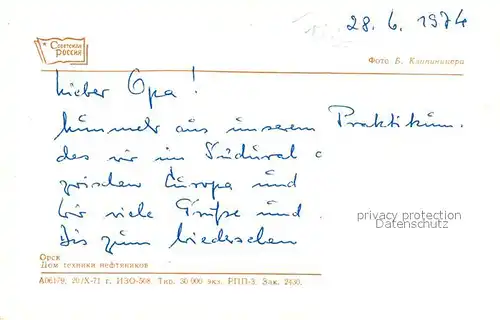 28. 6. 1974
Советская
Россия
Фото Б. Клипиницера
Lieber Opa!
aus unserem Praktikum.
das wir im Südural
zwischen Europa und
wir viele Grüße und
privacy protection
Datenschutz
Bis zum Wiedersehen
Орск
Дом техники нефтяников
А06179. 20/X-71 г. ИЗО-508. Тир. 30 000 экз. РПП-3. Зак. 2430.